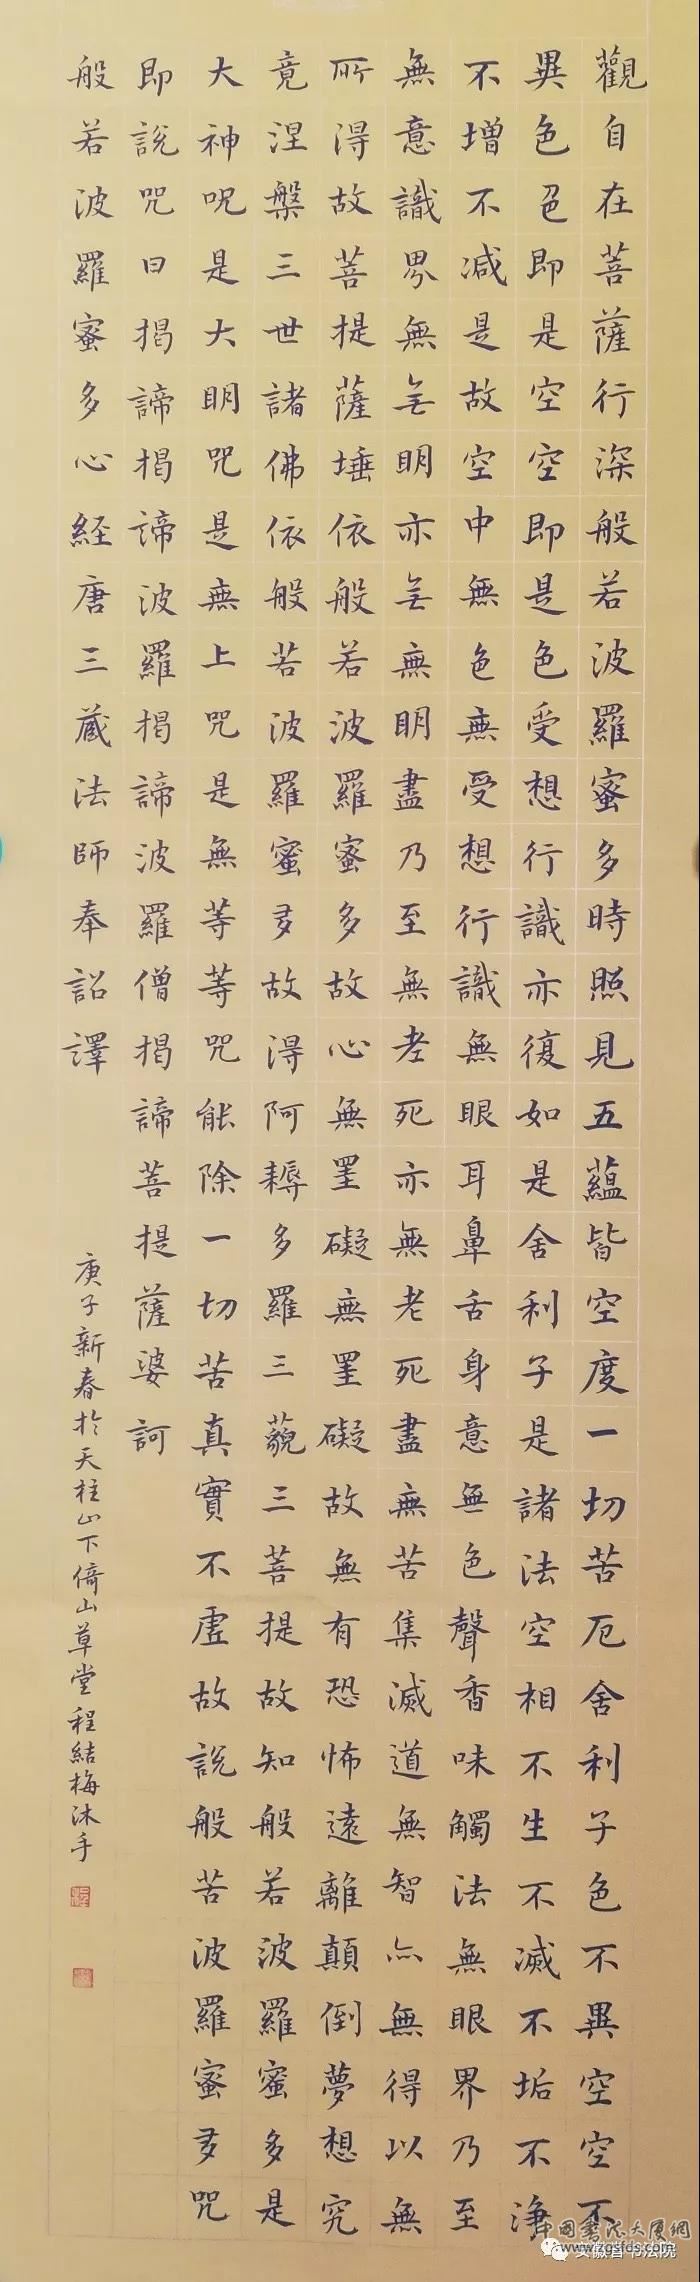 觀自在菩薩行深般若波羅蜜多時照見五蘊皆空度一切苦厄舍利子色不異空空不
異色色即是空空即是色受想行識亦復如是舍利子是諸法空相不生不滅不垢不淨
不增不減是故空中無色無受想行識無眼耳鼻舌身意無色聲香味觸法無眼界乃至
無意識界無無明亦無無明盡乃至無老死亦無老死盡無苦集滅道無智亦無得以無
所得故菩提薩埵依般若波羅蜜多故心無罣礙無罣礙故無有恐怖遠離顛倒夢想究
竟涅槃三世諸佛依般若波羅蜜多故得阿耨多羅三藐三菩提故知般若波羅蜜多是
大神呪是大明咒是無上咒是無等等咒能除一切苦真實不虛故說般若波羅蜜多咒
即說咒曰揭諦揭諦波羅揭諦波羅僧揭諦菩提薩婆訶
般若波羅蜜多心經唐三藏法師奉詔譯
庚子新春於天柱山下倚山草堂程結梅沐手
中國書法大廈網
www.zgsfds.com
安徽省书法院